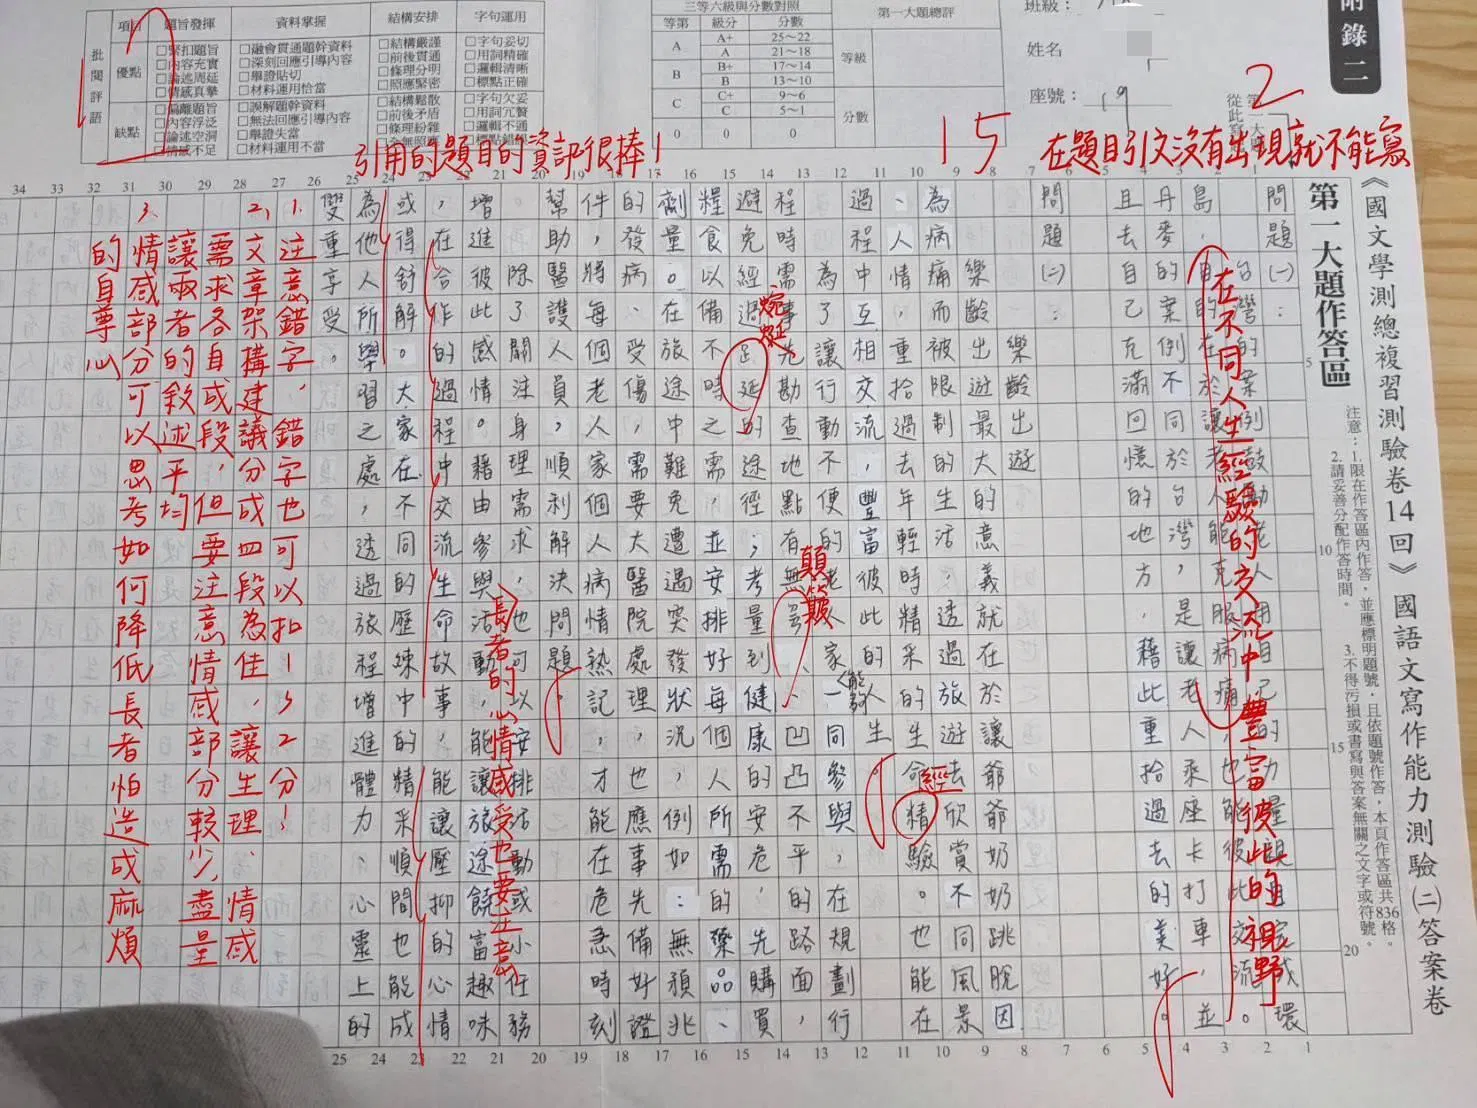 附錄二
《國文學測總複習測驗卷14回》國語文寫作能力測驗(二)答案卷
第一大題作答區
注意：1.限在作答區內作答，並應標明題號，且依題號作答，本頁作答區共836格。
2.請妥善分配作答時間。
3.不得污損或書寫與答案無關之文字或符號。
班級：
姓名
座號： 19
批閱評語
項目 題旨發揮 資料掌握 結構安排 字句運用
優點
□緊扣題旨 □融會貫通題幹資料 □結構嚴謹 □字句妥切
□內容充實 □深刻回應引導內容 □前後貫通 □用詞精確
□論述周延 □舉證貼切 □條理分明 □邏輯清晰
□情感真摯 □材料運用恰當 □照應緊密 □標點正確
缺點
□偏離題旨 □誤解題幹資料 □結構鬆散 □字句欠妥
□內容浮泛 □無法回應引導內容 □前後矛盾 □用詞冗贅
□論述空洞 □舉證失當 □條理紛雜 □邏輯不通
□情感不足 □材料運用不當
三等六級與分數對照
等第 級分 分數
A A+ 25～22
A 21～18
B B+ 17～14
B 13～10
C C+ 9～6
C 5～1
0 0 0
第一大題總評
等級
分數
2
15
在題目引文沒有出現就不能寫
引用的題目的資訊很棒！
問題(一)：
台灣的案例鼓勵老人用自己的力量親自完成環
島，目的在於讓老人能克服病痛，也能彼此交流。並
丹麥的案例不同於台灣，是讓老人乘座卡打車，
且去自己充滿回憶的地方，藉此重拾過去的美好。
在不同人生經驗的交流中豐富彼此的視野
問題(二)：
樂齡出遊
樂齡出遊最大的意義就在於讓爺爺奶奶跳脫因
為病痛而被限制的生活，透過旅遊去欣賞不同風景
、人情，重拾過去年輕時精采的人生命精驗。也能在
過程中互相交流，豐富彼此的人生
能夠
經
為了讓行動不便的老人家一同參與，在規劃行
程時需事先勘查地點有無、凹凸不平的路面，
顛簸
避免經過迂延的途徑；考量到健康的安危，先購買
蜿蜒
糧食以備不時之需，並安排好每個人所需的藥品、
劑量。在旅途中難免遭遇突發狀況，例如：無預兆
的發病、受傷，需要大醫院處理，也應事先備好證
件，將每個老人家個人病情熱記，才能在危急時刻
幫助醫護人員，順利解決問題。
除了關注身理需求，也可以安排活動或小任務
長者的心情感受也要注意
增進彼此感情。藉由參與活動，能讓旅途饒富趣味
，在合作的過程中交流生命故事，能讓壓抑的心情
或得舒解。大家在不同的歷練中的，精采順間也能成
為他人所學習之處，透過旅程增進體力、心靈上的
雙重享受。
1. 注意錯字，錯字也可以扣1、2分！
2. 文章架構建議分成四段為佳，讓生理、情感
需求各自成段，但要注意情感部分較少，盡量
讓兩者的敘述平均
3. 情感部分可以思考如何降低長者怕造成麻煩
的自尊心